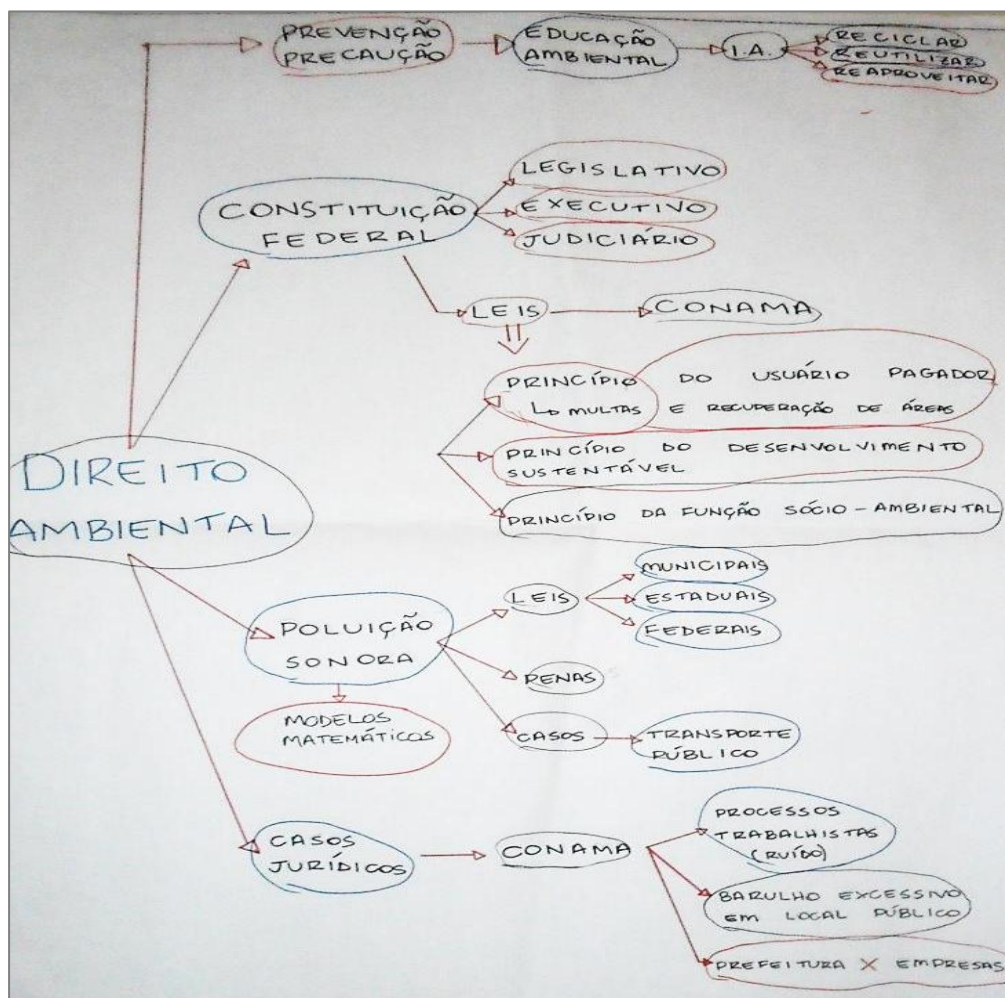 PREVENÇÃO
PRECAUÇÃO
EDUCAÇÃO
AMBIENTAL
I.A.
RECICLAR
REUTILIZAR
REAPROVEITAR
CONSTITUIÇÃO
FEDERAL
LEGISLATIVO
EXECUTIVO
JUDICIÁRIO
LEIS
CONAMA
PRINCÍPIO DO USUÁRIO PAGADOR
MULTAS E RECUPERAÇÃO DE ÁREAS
PRINCÍPIO DO DESENVOLVIMENTO
SUSTENTÁVEL
PRINCÍPIO DA FUNÇÃO SÓCIO-AMBIENTAL
DIREITO
AMBIENTAL
POLUIÇÃO
SONORA
MODELOS
MATEMÁTICOS
LEIS
MUNICIPAIS
ESTADUAIS
FEDERAIS
RENAS
CASOS
TRANSPORTE
PÚBLICO
CASOS
JURÍDICOS
CONAMA
PROCESSOS
TRABALHISTAS
(RUÍDO)
BARULHO EXCESSIVO
EM LOCAL PÚBLICO
PREFEITURA X EMPRESAS